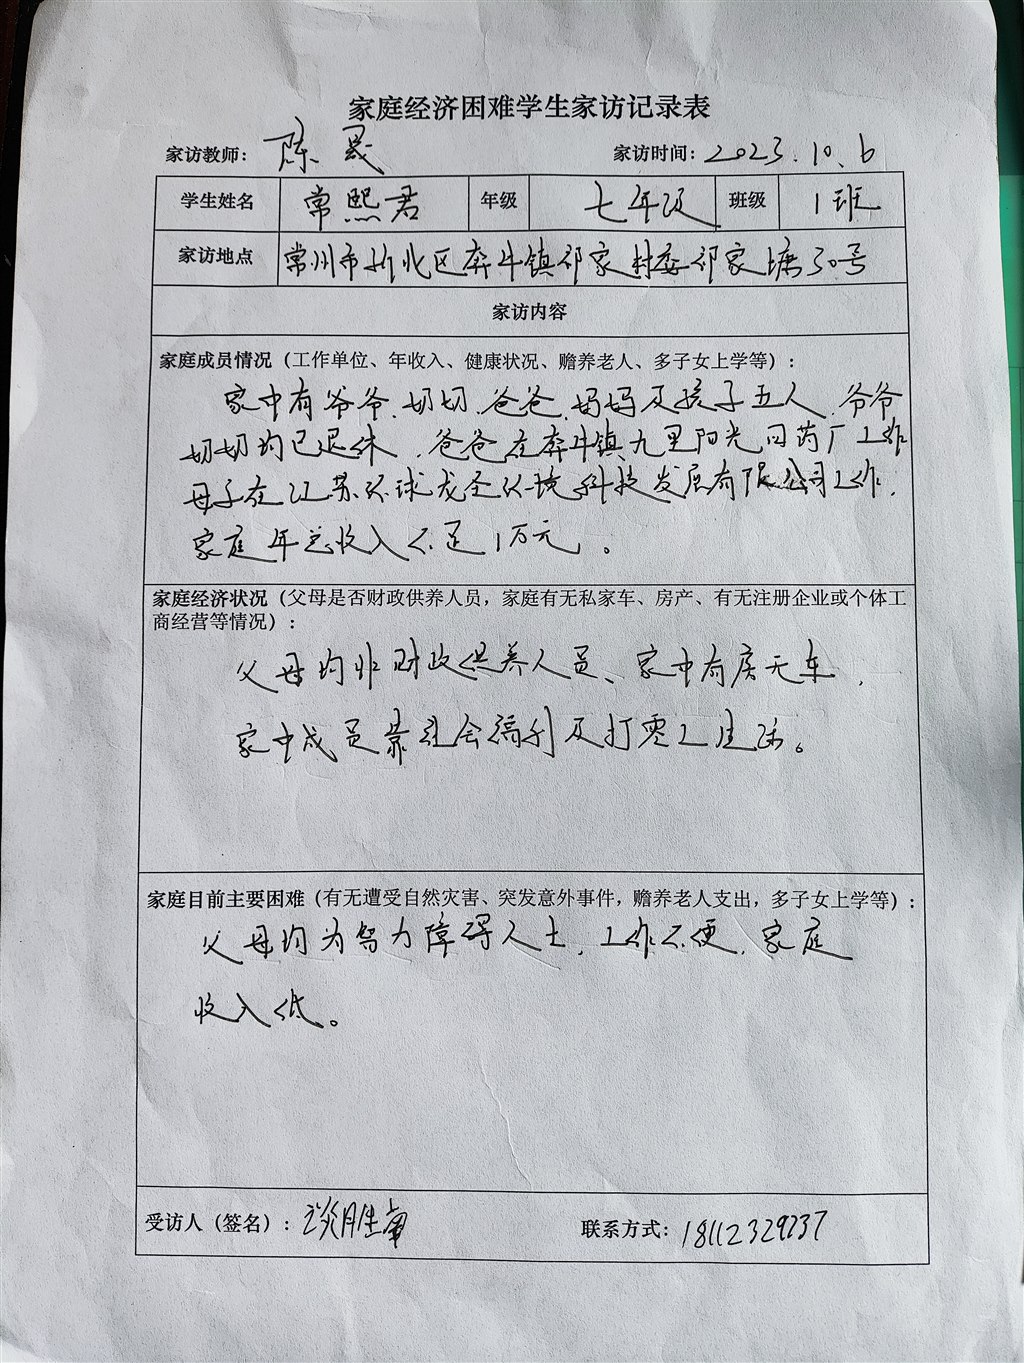 家庭经济困难学生家访记录表
家访教师： 陈晟 家访时间：2023.10.6
学生姓名 常熙君 年级 七年级 班级 1班
家访地点 常州市新北区奔牛镇邹家村委邹家塘30号
家访内容
家庭成员情况（工作单位、年收入、健康状况、赡养老人、多子女上学等）：
家中有爷爷、奶奶、爸爸、妈妈及孩子五人，爷爷
奶奶均已退休，爸爸在奔牛镇九里阳光回药厂工作
母子在江苏环球龙圣环境科技发展有限公司工作，
家庭年总收入不足1万元。
家庭经济状况（父母是否财政供养人员，家庭有无私家车、房产、有无注册企业或个体工
商经营等情况）：
父母均非财政供养人员、家中有房无车，
家中成员靠社会福利及打零工生活。
家庭目前主要困难（有无遭受自然灾害、突发意外事件，赡养老人支出，多子女上学等）：
父母均为智力障碍人士，工作不便，家庭
收入低。
受访人（签名）： 联系方式：18112329237